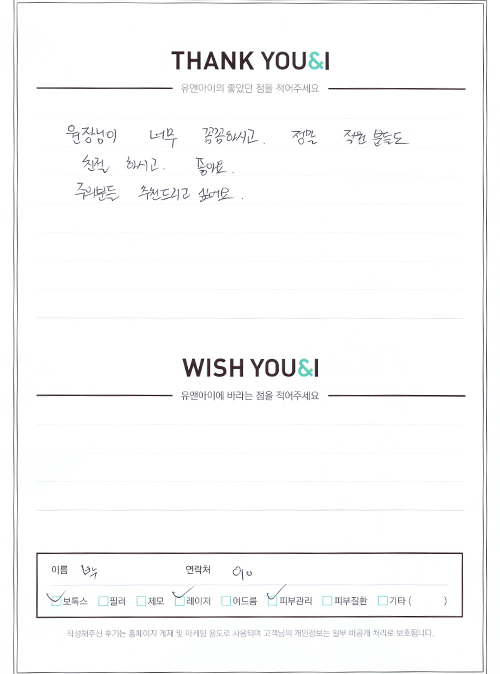 THANK YOU&I
유앤아이의 좋았던 점을 적어주세요
원장님이 너무 꼼꼼하시고. 정말 직원 분들도
친절 하시고. 좋아요.
주위분들 추천드리고 싶어요.
WISH YOU&I
유앤아이에 바라는 점을 적어주세요
이름 연락처 010
보톡스 필러 제모 레이저 여드름 피부관리 피부질환 기타 ( )
작성해주신 후기는 홈페이지 게재 및 마케팅 용도로 사용되며 고객님의 개인정보는 일부 비공개 처리로 보호됩니다.